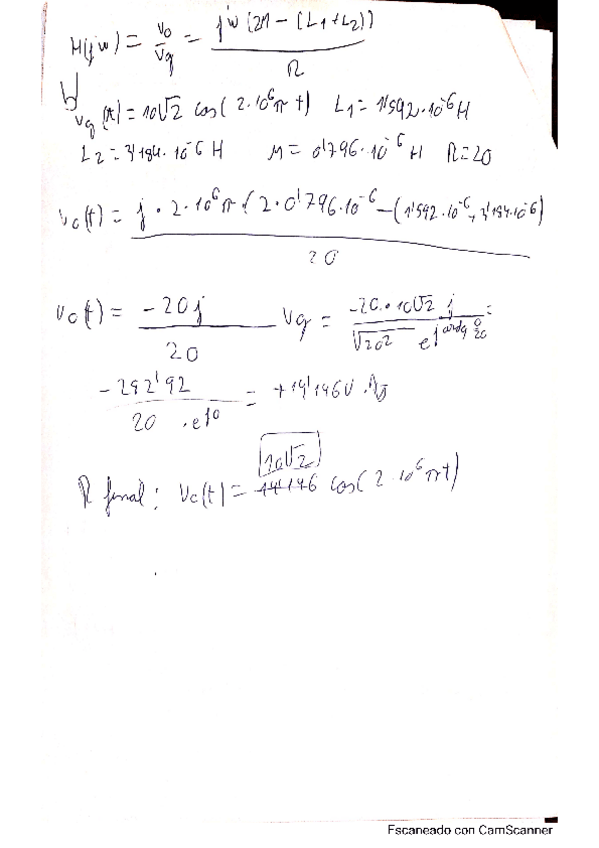 H(jw) = Vo/Vg = jw(2M - (L1+L2))/R
Vg(t) = 10√2 cos(2·10^6 π t) L1 = 1'592·10^-6 H
L2 = 3'184·10^-6 H M = 0'796·10^-6 H R = 20
Vo(t) = j·2·10^6 π (2·0'796·10^-6 - (1'592·10^-6 + 3'184·10^-6)
20
Vo(t) = -20j/20 Vg = -20·10√2 j / √20² e^j =
-292'92 / 20·e^j0 = +14'146V
10√2
R final: Vo(t) = 14'146 cos(2·10^6 πt)
Escaneado con CamScanner